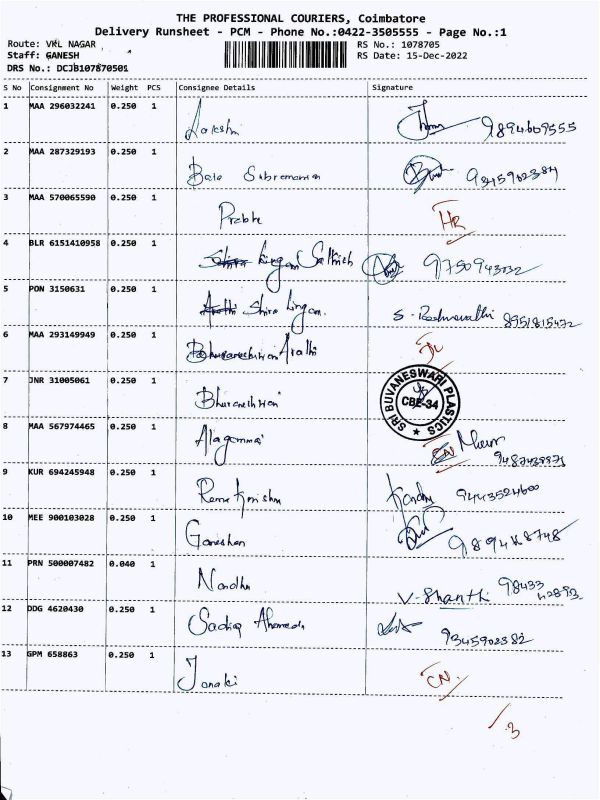 THE PROFESSIONAL COURIERS, Coimbatore
Delivery Runsheet - PCM - Phone No.:0422-3505555 - Page No.:1
Route: VKL NAGAR RS No.: 1078705
Staff: GANESH RS Date: 15-Dec-2022
DRS No.: DCJB107870501
S No Consignment No Weight PCS Consignee Details Signature
1 MAA 296032241 0.250 1 9894609555
2 MAA 287329193 0.250 1 Bala Subramanian
3 MAA 570065590 0.250 1 Prabhu
4 BLR 6151410958 0.250 1 lingam Sathish 9750943032
5 PON 3150631 0.250 1 Shiva lingam. S. 8951815472
6 MAA 293149949 0.250 1 Arathi
7 JNR 31005061 0.250 1 SRI BUVANESWARI PLASTICS CBE-34
8 MAA 567974465 0.250 1 Alagammai
9 KUR 694245948 0.250 1 Rama Krishna 9443524600
10 MEE 900103028 0.250 1 Ganeshan
11 PRN 500007482 0.040 1 Nandhu V-Shanthi 98433 42893
12 DDG 4620430 0.250 1 Sadiq 9345902382
13 GPM 658863 0.250 1 Janaki CN.